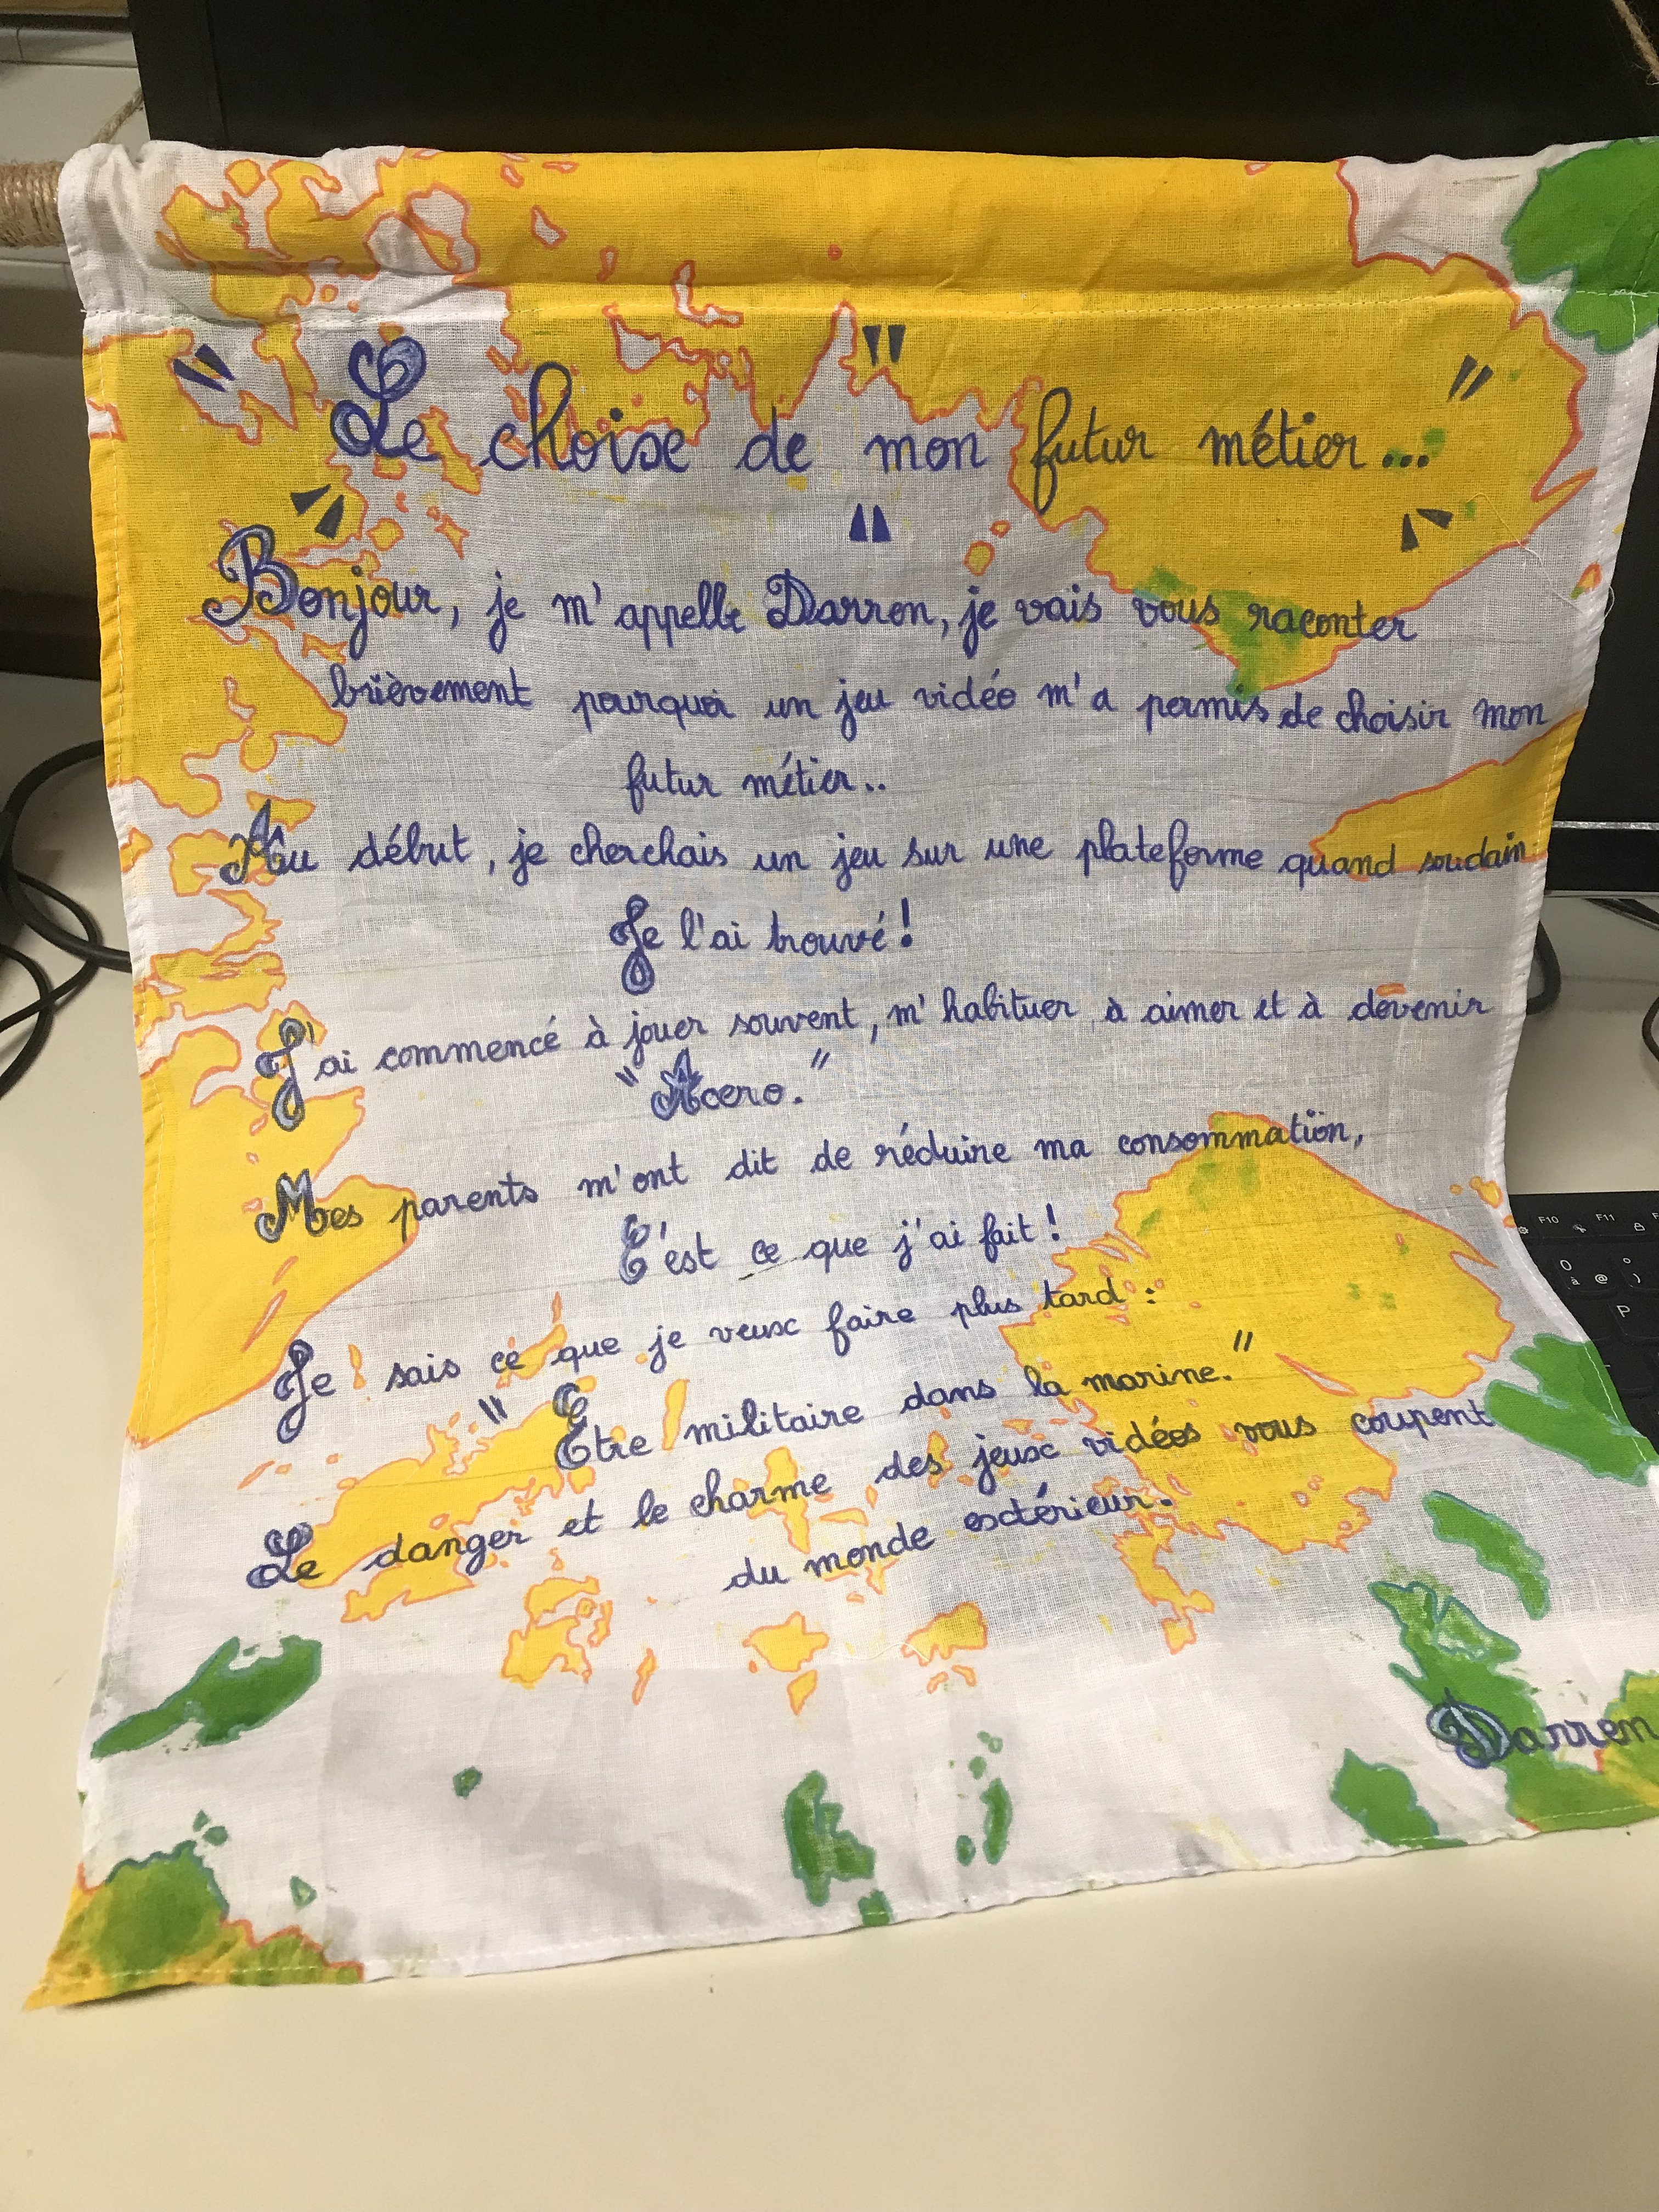 " Le choix de mon futur métier... "
Bonjour, je m'appelle Darren, je vais vous raconter
brièvement pourquoi un jeu vidéo m'a permis de choisir mon
futur métier..
Au début, je cherchais un jeu sur une plateforme quand soudain
Je l'ai trouvé !
J'ai commencé à jouer souvent, m'habituer à aimer et à devenir
"Accro."
Mes parents m'ont dit de réduire ma consommation,
C'est ce que j'ai fait !
Je sais ce que je veux faire plus tard :
"Etre militaire dans la marine."
Le danger et le charme des jeux vidéos vous coupent
du monde extérieur.
Darren
F10 F11
O
à @ )
P